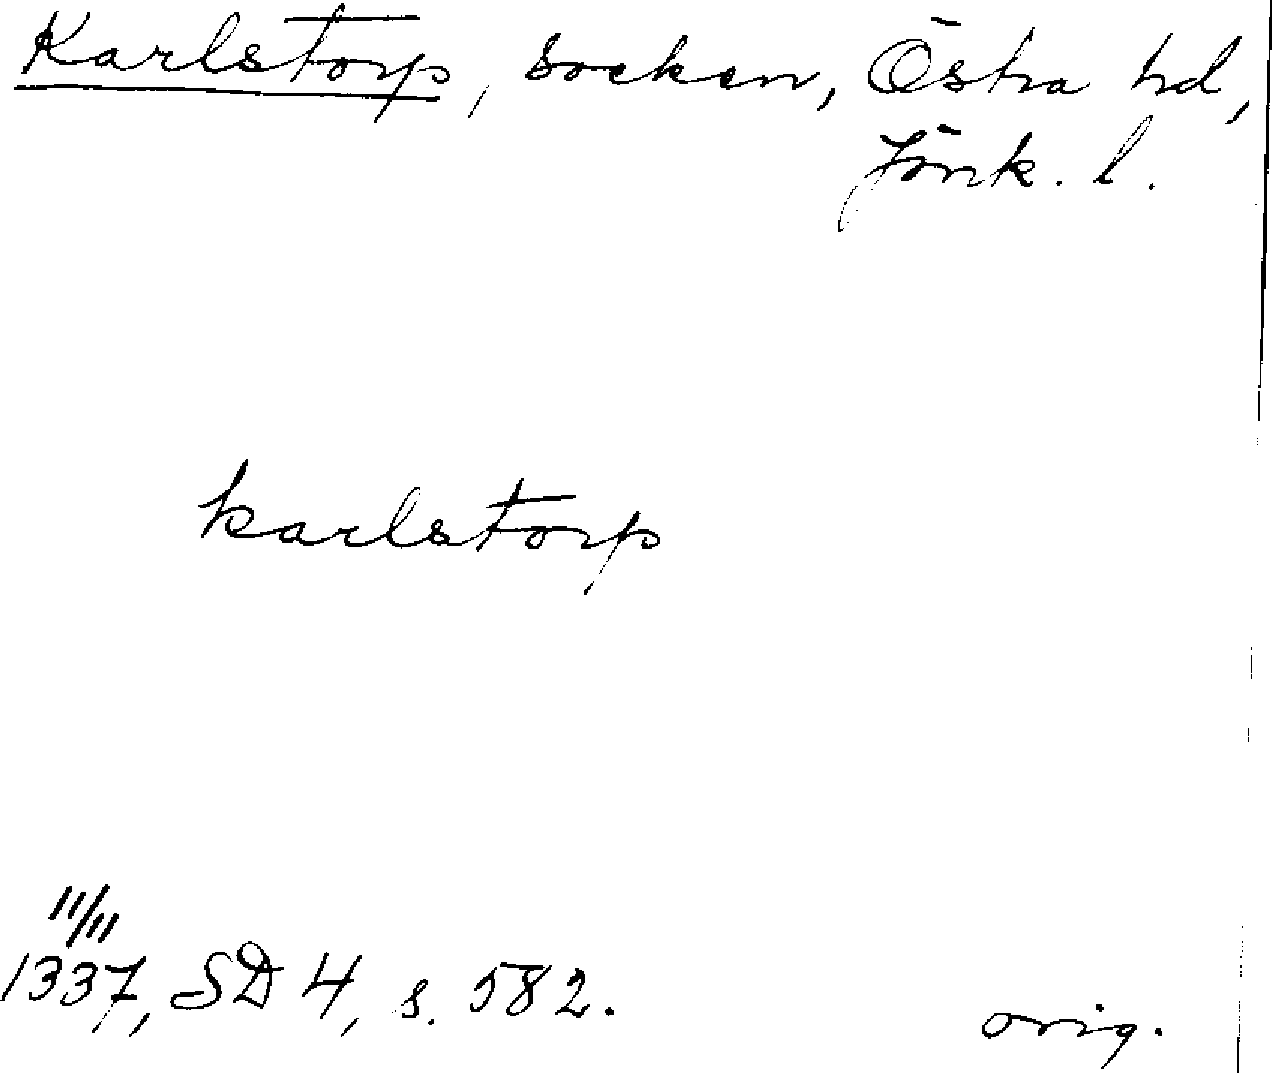 Karlstorp, socken, Östra hd,
Jönk. l.
karlstorp
11/11
1337, SD 4, s. 582.
orig.